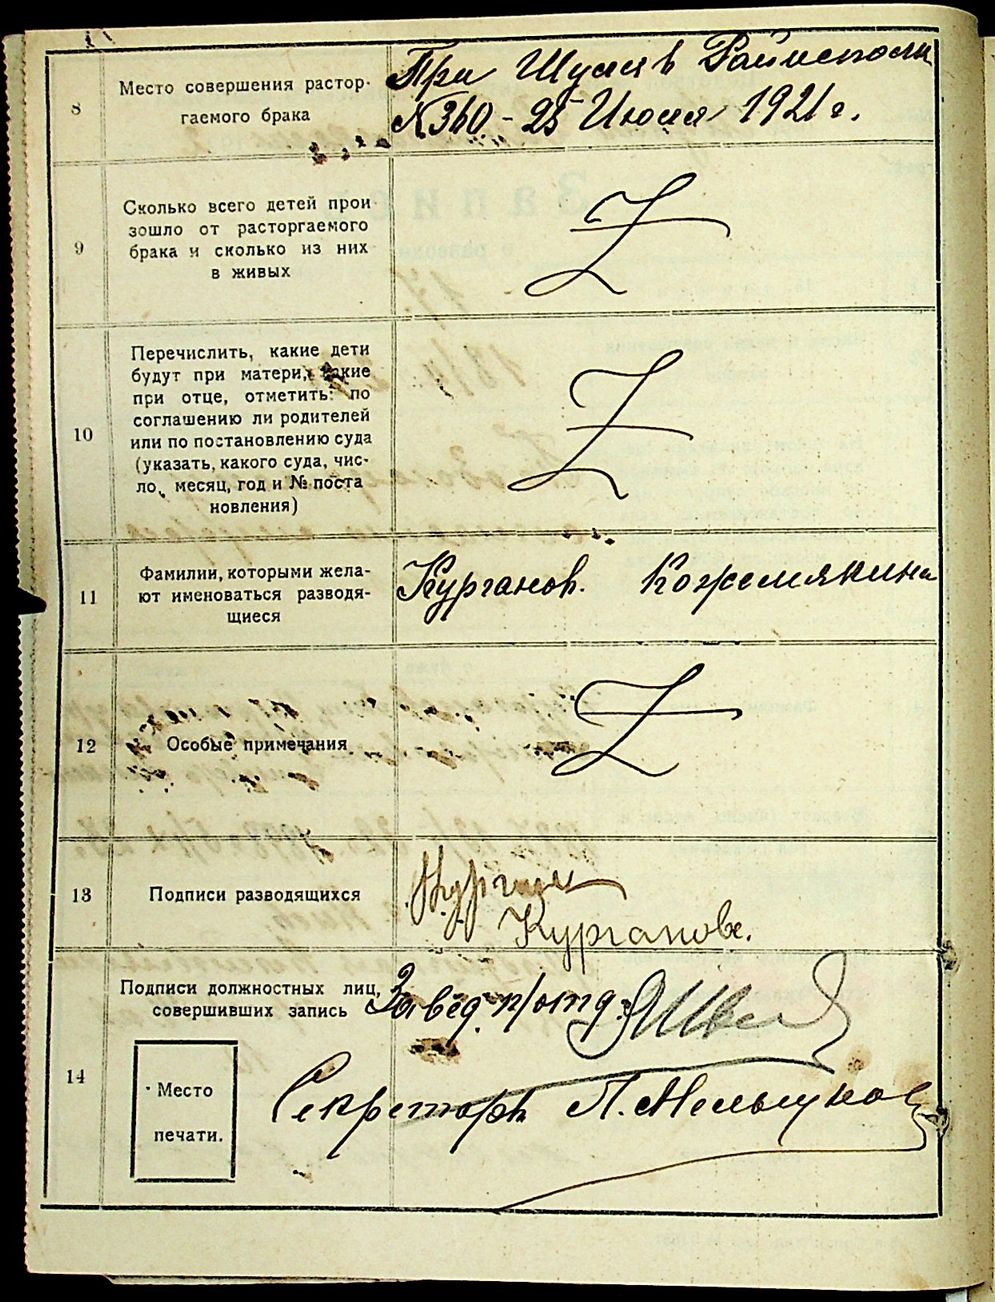 8
Место совершения растор-
гаемого брака
При Шумяв Райисполк
№ 360 - 25 Июля 1921 г.
9
Сколько всего детей прои
зошло от расторгаемого
брака и сколько из них
в живых
Z
10
Перечислить, какие дети
будут при матери, какие
при отце, отметить: по
соглашению ли родителей
или по постановлению суда
(указать, какого суда, чис-
ло, месяц, год и № поста
новления)
Z
11
Фамилии, которыми жела-
ют именоваться разводя-
щиеся
Курганов. Кожемякина
12
Особые примечания
Z
13
Подписи разводящихся
Курганов.
14
Подписи должностных лиц,
совершивших запись
Завед. п/отд.
Место
печати.
Секретарь